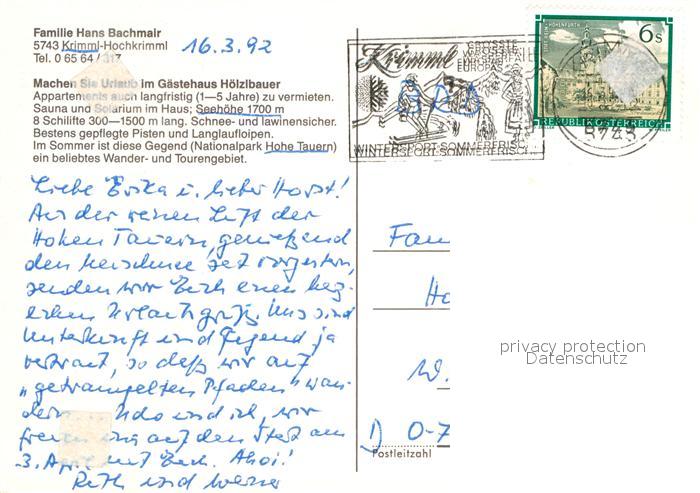 Familie Hans Bachmair
5743 Krimml-Hochkrimml
Tel. 0 65 64 / 317
16.3.92
Machen Sie Urlaub im Gästehaus Hölzlbauer
Appartements auch langfristig (1—5 Jahre) zu vermieten.
Sauna und Solarium im Haus; Seehöhe 1700 m
8 Schilifte 300—1500 m lang. Schnee- und lawinensicher.
Bestens gepflegte Pisten und Langlaufloipen.
Im Sommer ist diese Gegend (Nationalpark Hohe Tauern)
ein beliebtes Wander- und Tourengebiet.
Liebe Erika u. lieber Horst!
Aus der reinen Luft der
Hohen Tauern, genießend
den Neuschnee seit vorgestern,
senden wir Euch einen herz-
lichen Urlaubsgruß. Uns sind
Unterkunft und Gegend ja
vertraut, so daß wir auf
"getrampelten Pfaden" wan-
dern. Udo und ich, wir
freuen uns auf den Start am
3. April mit Euch. Ahoi!
Ruth und Werner
Krimml GRÖSSTE
WASSERFÄLLE
EUROPAS
WINTERSPORT-SOMMERFRISCHE
6s
REPUBLIK ÖSTERREICH
5743
Fam
Ho
W.
D 0-7
Postleitzahl
privacy protection
Datenschutz